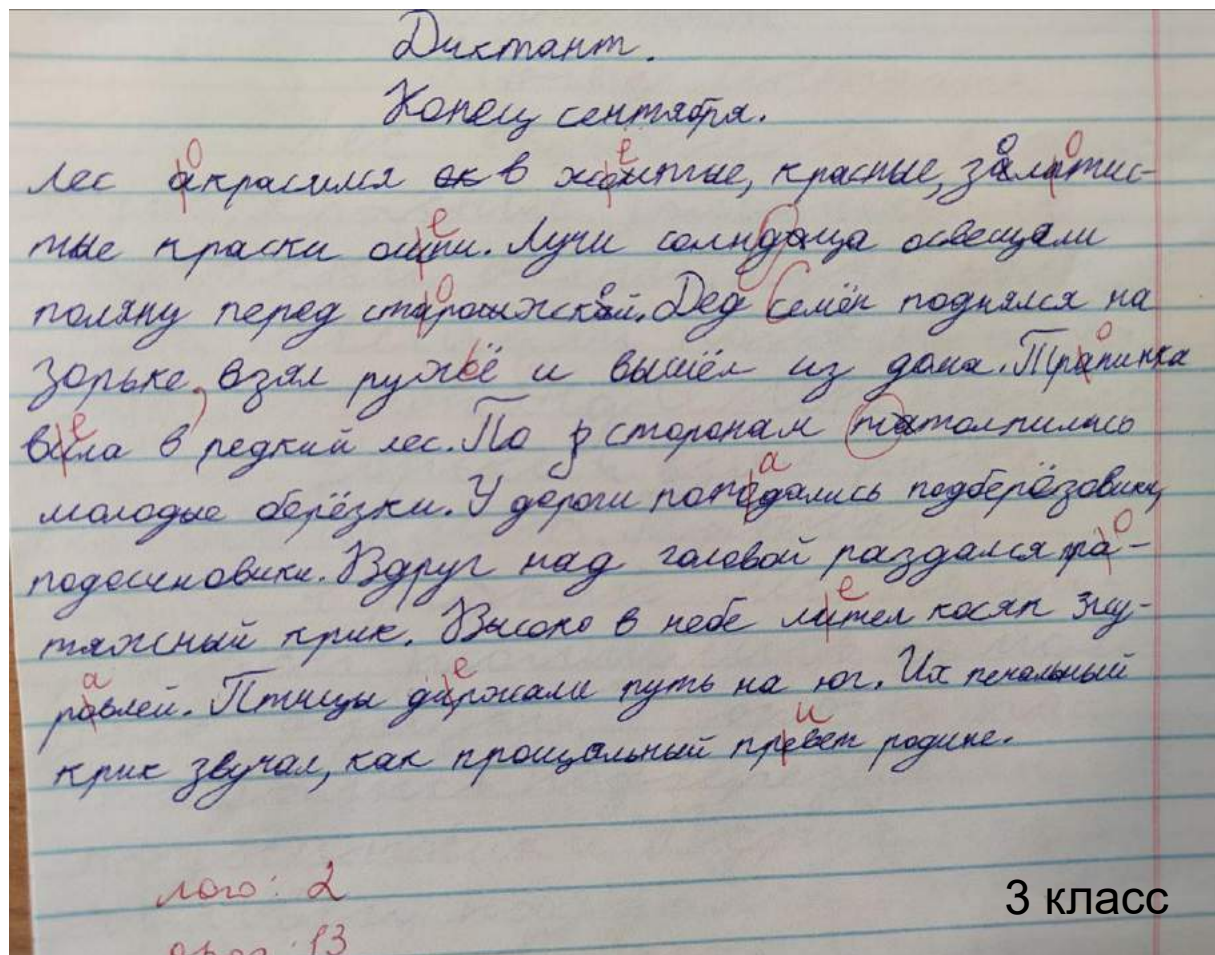 Диктант.
Конец сентября.
Лес акрасился в жолтые, красные, залатис-
тые краски осини. Лучи солндаца освещали
поляну перед старожской. Дед Семён поднялся на
зорьке, взял ружьё и вышел из дома. Трапинка
вила в редкий лес. По сторонам татолпились
молодые берёзки. У дороги поподались подберёзовики,
подосиновики. Вдруг над головой раздался пра-
тяжный крик. Высоко в небе лител косяк жу-
ровлей. Птицы диржали путь на юг. Их печальный
крик звучал, как прощальный превет родине.
лого: 2
орфо: 13
3 класс